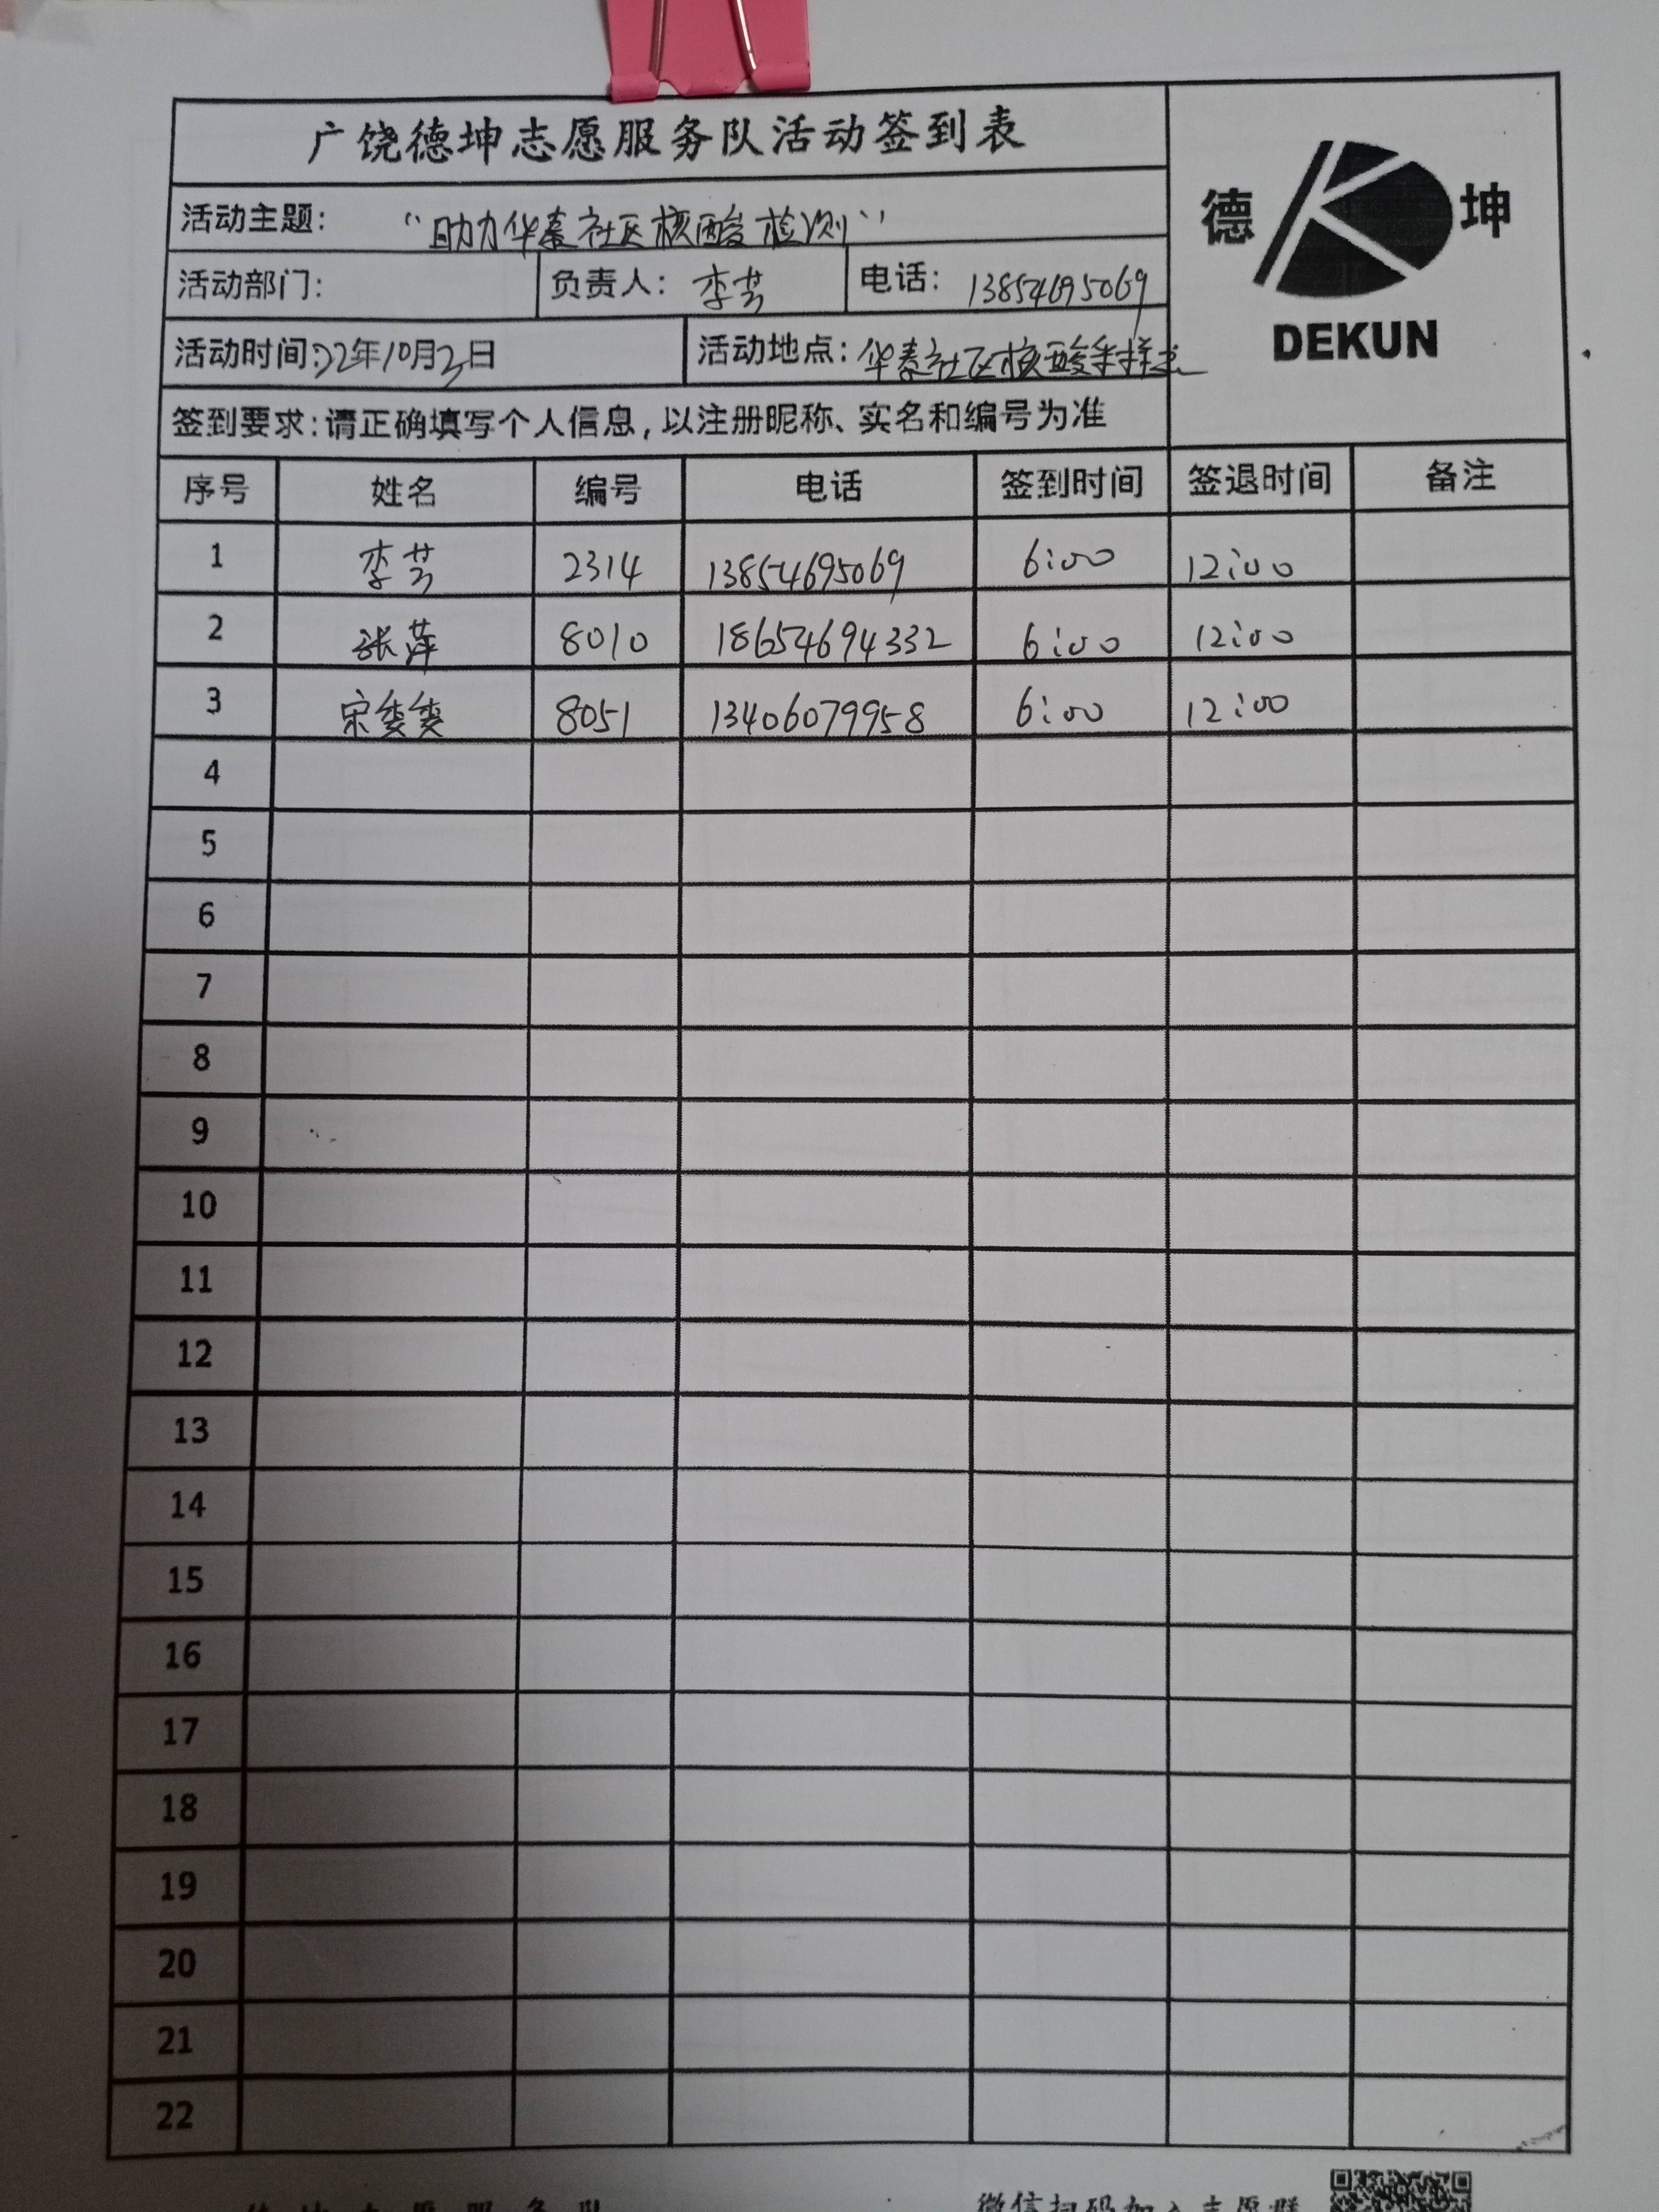 广饶德坤志愿服务队活动签到表
德 坤
DEKUN
活动主题： “助力华泰社区核酸检测”
活动部门： 负责人：李芸 电话：13854695069
活动时间：22年10月3日 活动地点：华泰社区核酸采样点
签到要求：请正确填写个人信息，以注册昵称、实名和编号为准
序号 姓名 编号 电话 签到时间 签退时间 备注
1 李芸 2314 13854695069 6:00 12:00
2 张萍 8010 18654694332 6:00 12:00
3 宋 8051 13406079958 6:00 12:00
4
5
6
7
8
9
10
11
12
13
14
15
16
17
18
19
20
21
22
微信扫码加入志愿群